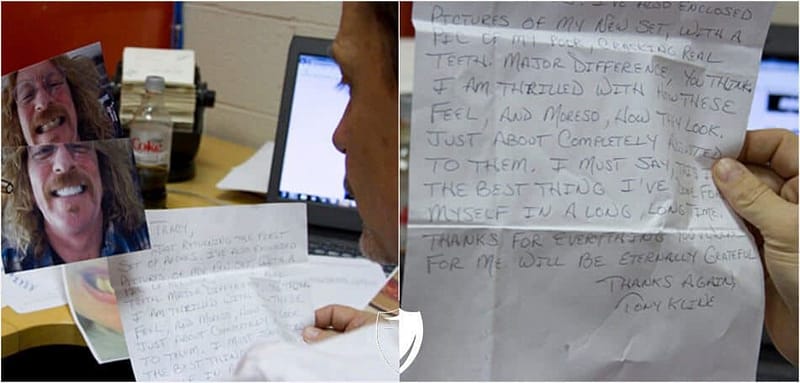 Coke
TRACY,
JUST RETURNING THE FIRST
SET OF
I'VE ALSO ENCLOSED
PICTURES OF MY NEW SET, WITH A
PIC OF MY
MAJOR DIFFERENCE
I AM THRILLED WITH
FEEL, AND MORESO, HOW
JUST ABOUT COMPLETELY
TO THEM. I MUST SAY
THE BEST THING
IN A
I'VE ALSO ENCLOSED
PICTURES OF MY NEW SET, WITH A
PIC OF MY POOR, CRACKING REAL
TEETH. MAJOR DIFFERENCE, YOU THINK,
I AM THRILLED WITH HOW THESE
FEEL, AND MORESO, HOW THEY LOOK.
JUST ABOUT COMPLETELY ADJUSTED
TO THEM. I MUST SAY, THIS IS
THE BEST THING I'VE DONE FOR
MYSELF IN A LONG, LONG TIME.
THANKS FOR EVERYTHING
FOR ME. WILL BE ETERNALLY GRATEFUL
THANKS AGAIN,
TONY KLINE